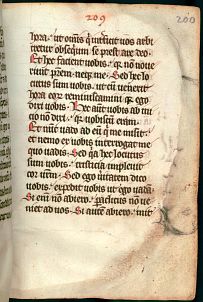 209
200
hora. ut omīs q̇ īt̄ficit uos arbi
tretur obsequiū se prestare deo.
Et hec facient uobis. q̄ nō noue
runt prēm. neq̄ me. Sed hec lo
cutus sum uobis. ut cū uenerit
hora eoꝝ reminiscamini q̄ ego
dixi uobis. Hec aūt uobis ab ini
tio nō dixi. q̄ uobiscū eram.
Et nūc uado ad eū q̄ me misit.
et nemo ex uobis interrogat me
quo uadis. Sed q̄a hec locutus
sum uobis. tristicia impleuit
cor ur̄m. Sed ego ūitatem dico
uobis. expedit uobis ut ego uadā.
Si eni nō abiero. paraclitus nō ue
niet ad uos. Si aūt abiero. mit